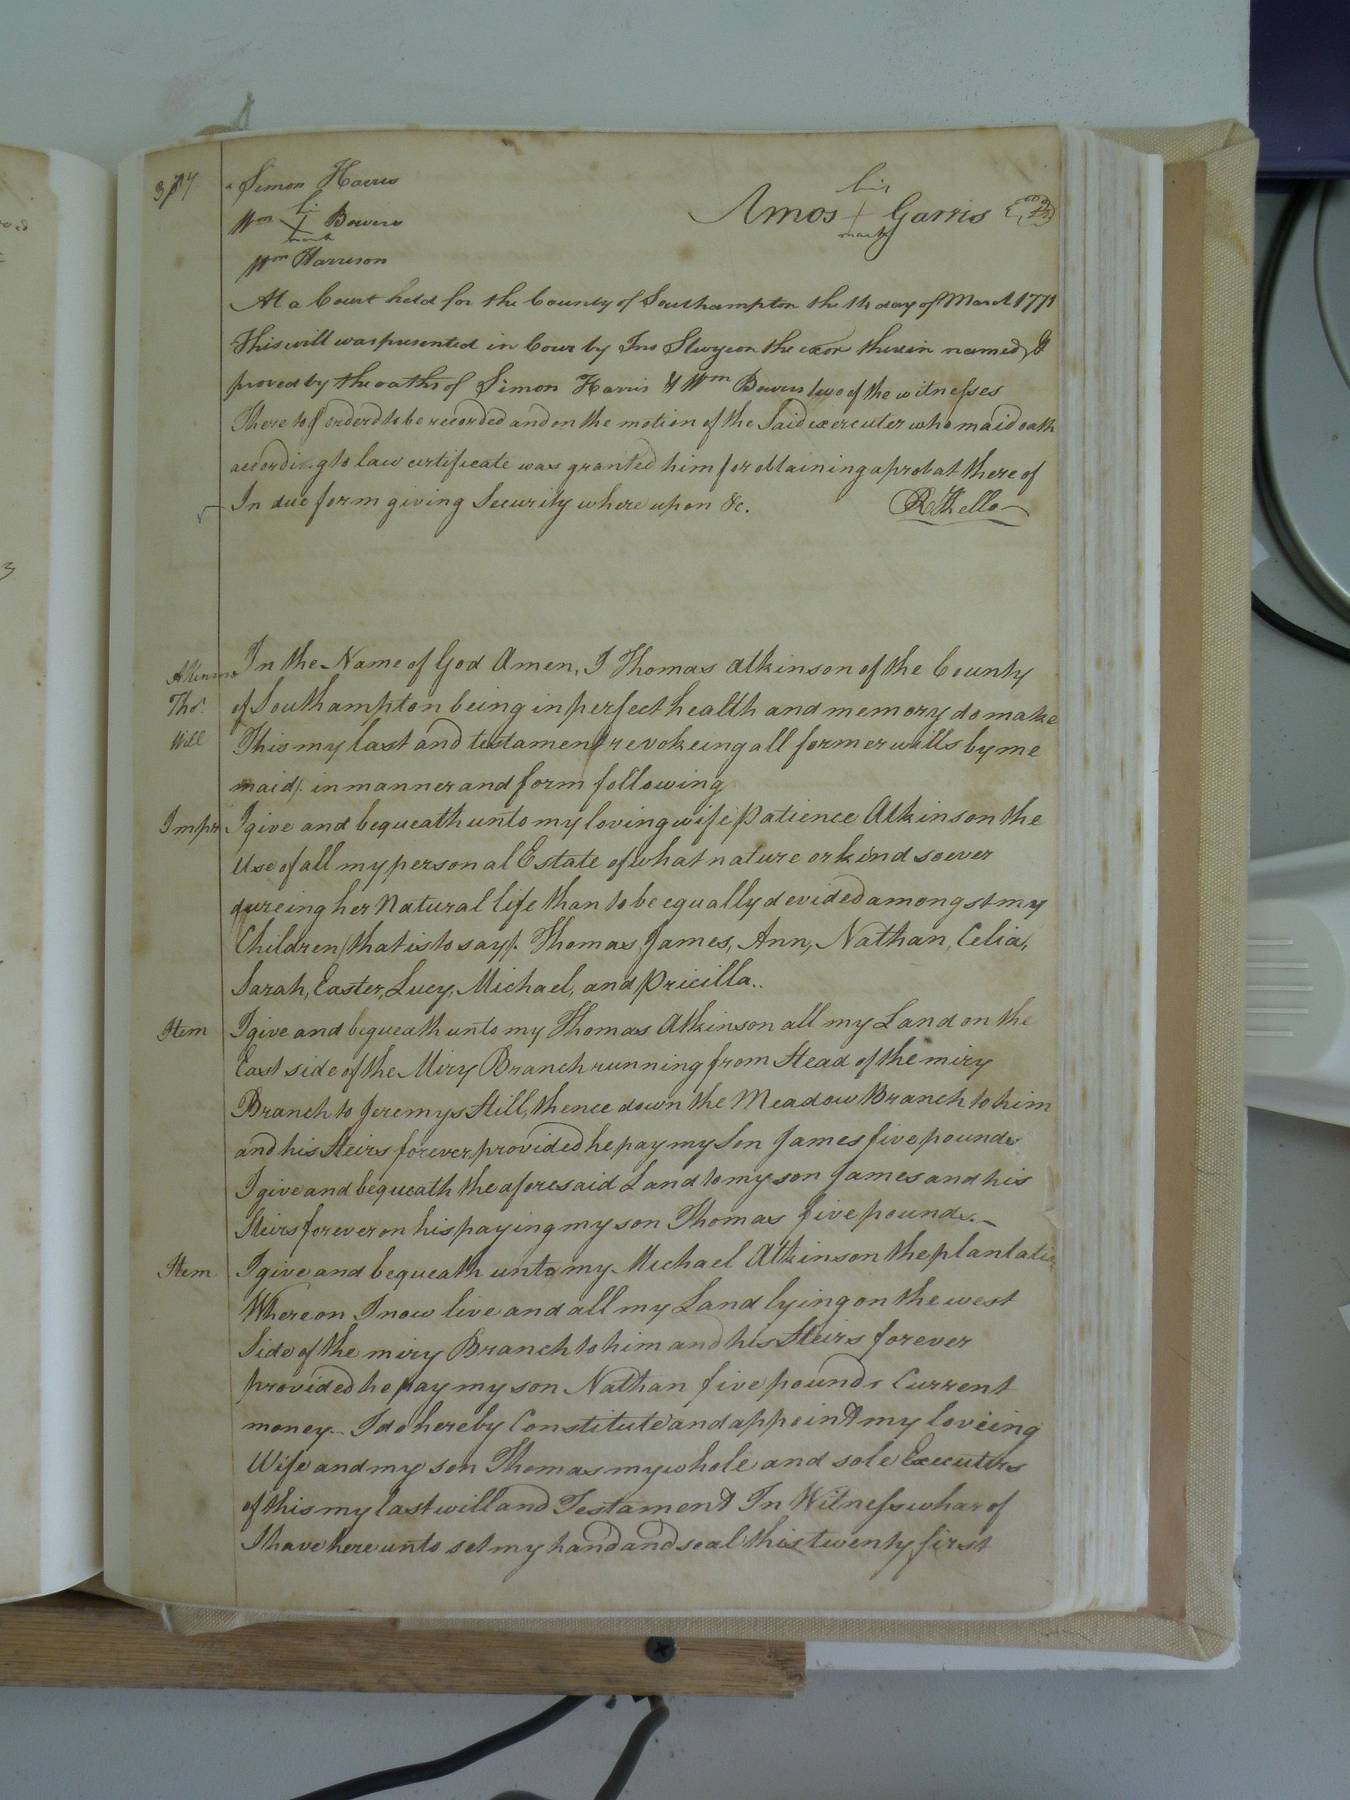 Simon Harris
his
Amos + Garris
mark
his
Wm X Bowers
mark
Wm Harrison
At a Court held for the County of Southampton the 14 day of March 1771
This will was presented in Cour by Jno the exor therein named, &
proved by the oaths of Simon Harris & Wm Bowers two of the witnesses
There to & orderd to be recorded and on the motion of the Said executer who maid oath
according to law certificate was granted him for obtaining a probat there of
In due form giving Security where upon &c. R Kello
Atkinson In the Name of God Amen, I Thomas Atkinson of the County
Thos. of Southampton being in perfect health and memory do make
Will This my last and testament revokeing all former wills by me
maid/. in manner and form following
Impr I give and bequeath unto my loving wife Patience Atkinson the
Use of all my personal Estate of what nature or kind soever
dureing her Natural life than to be equally devided amongst my
Children /that is to say/. Thomas, James, Ann, Nathan, Celia,
Sarah, Easter, Lucy, Michael, and Pricilla..
Item I give and bequeath unto my Thomas Atkinson all my Land on the
East side of the Miry Branch running from Head of the miry
Branch to Jeremys Hill, thence down the Meadow Branch to him
and his Heirs forever, provided he pay my Son James five pounds
I give and bequeath the aforesaid Land to my son James and his
Heirs forever on his paying my son Thomas five pounds.—
Item I give and bequeath unto my Michael Atkinson the plantatio
Whereon I now live and all my Land lying on the west
Side of the miry Branch to him and his Heirs forever
provided he pay my son Nathan five pounds Current
money.. I do hereby Constitute and appoint my loveing
Wife and my son Thomas my whole and sole Executors
of this my last will and Testament In Witness whar of
I have here unto set my hand and seal this twenty first